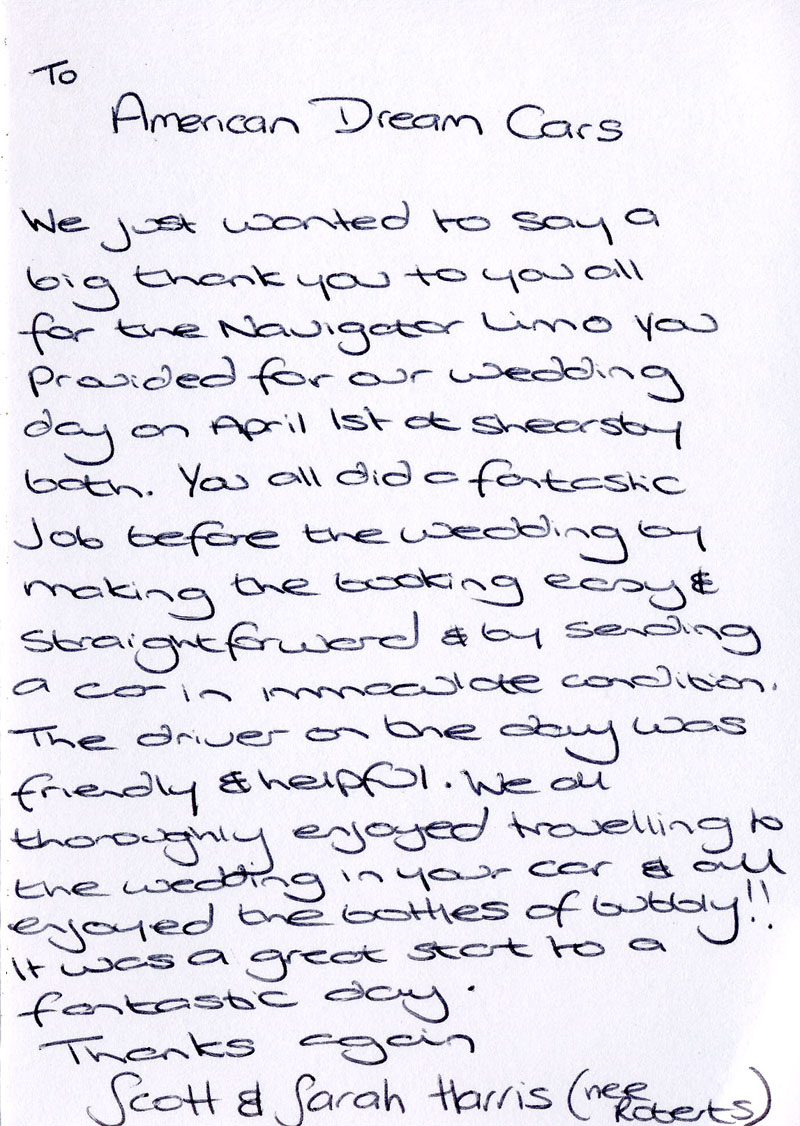 To
American Dream Cars
We just wanted to say a
big thank you to you all
for the Navigator Limo you
Provided for our wedding
day on April 1st at shearsby
bath. You all did a fantastic
Job before the wedding by
making the booking easy &
straightforward & by sending
a car in immaculate condition.
The driver on the day was
friendly & helpful. We all
thoroughly enjoyed travelling to
the wedding in your car & all
enjoyed the bottles of bubbly!!
It was a great start to a
fantastic day.
Thanks again
Scott & Sarah Harris (nee
Roberts)